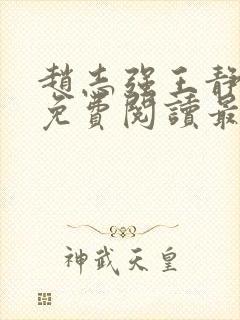 趙志強王靜
免費閱讀最
神武天皇